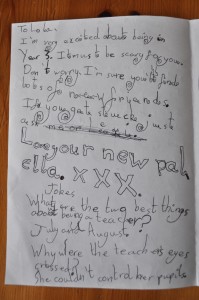 I'm very excited about being in
Year 3. It must be scary for you.
Don't worry. I'm sure you'll
lots of for yards.
If you get stuck just
ask
Love your new pal
ella. xxx
Jokes
What are the two best things
about being a teacher?
July and August.
Why were the teachers eyes
crossed?
She couldn't control her pupils